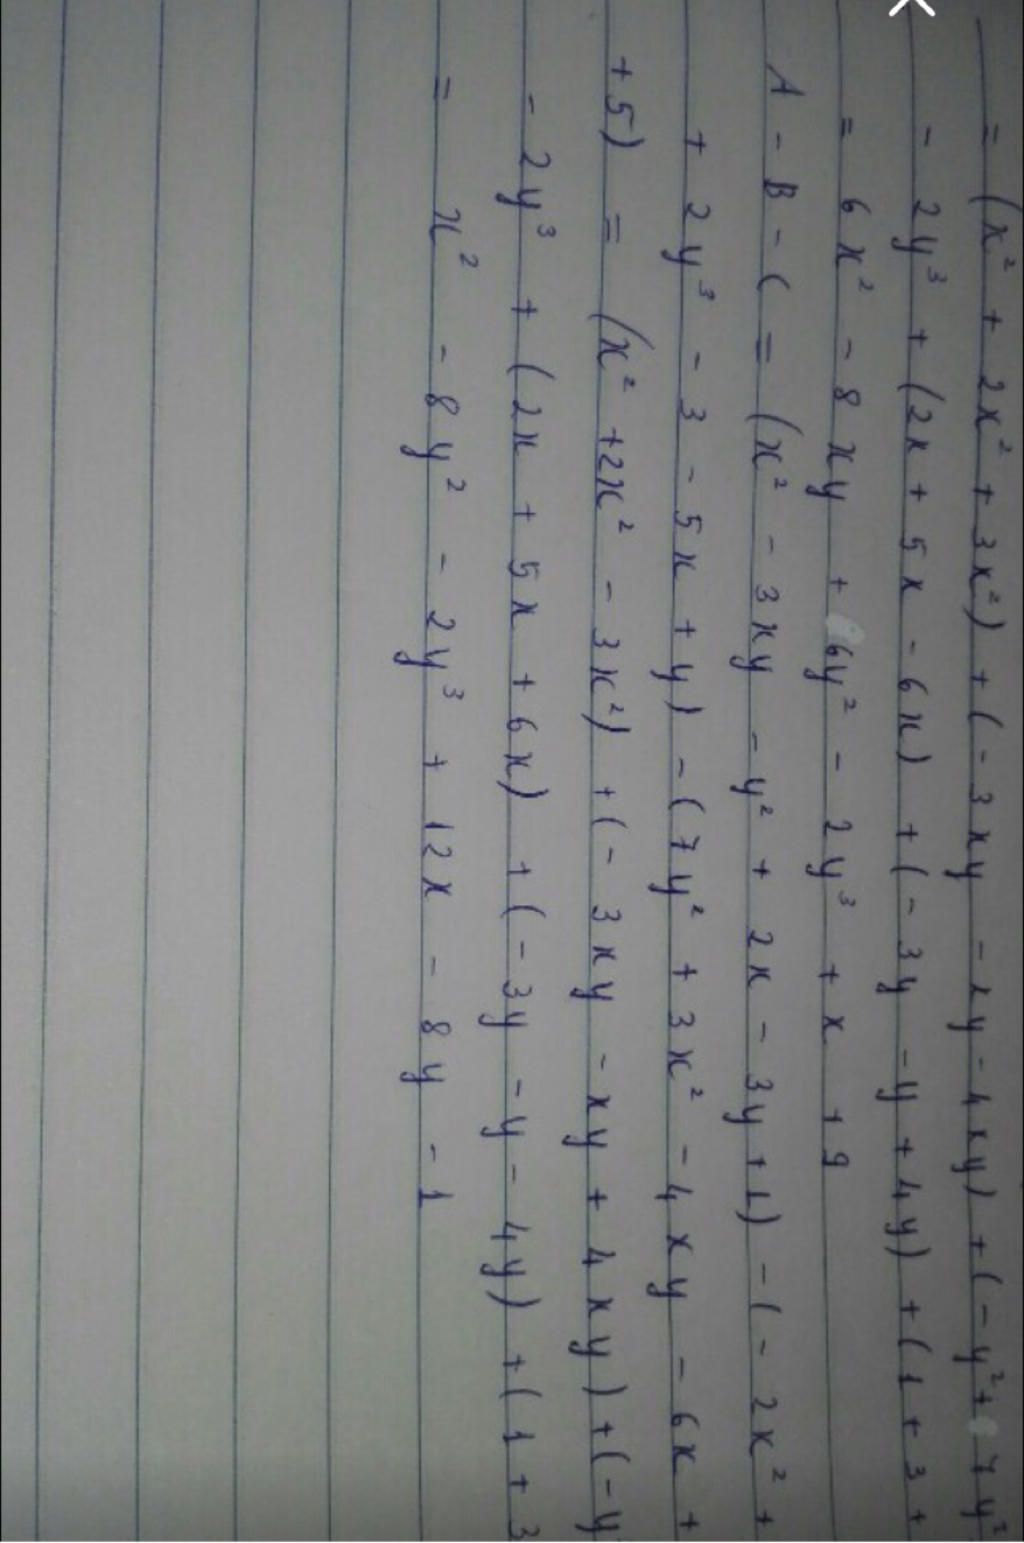 = (x² + 2x² + 3x²) + (- 3xy - xy - 4xy) + (- y² + 7y²
- 2y³ + (2x + 5x - 6x) + (- 3y - y + 4y) + (1 + 3 +
= 6x² - 8xy + 6y² - 2y³ + x + 9
A - B - C = (x² - 3xy - y² + 2x - 3y + 1) - (- 2x² +
+ 2y³ - 3 - 5x + y) - (7y² + 3x² - 4xy - 6x +
+ 5) = (x² + 2x² - 3x²) + (- 3xy - xy + 4xy) + (- y
- 2y³ + (2x + 5x + 6x) + (- 3y - y - 4y) + (1 + 3
= x² - 8y² - 2y³ + 12x - 8y - 1